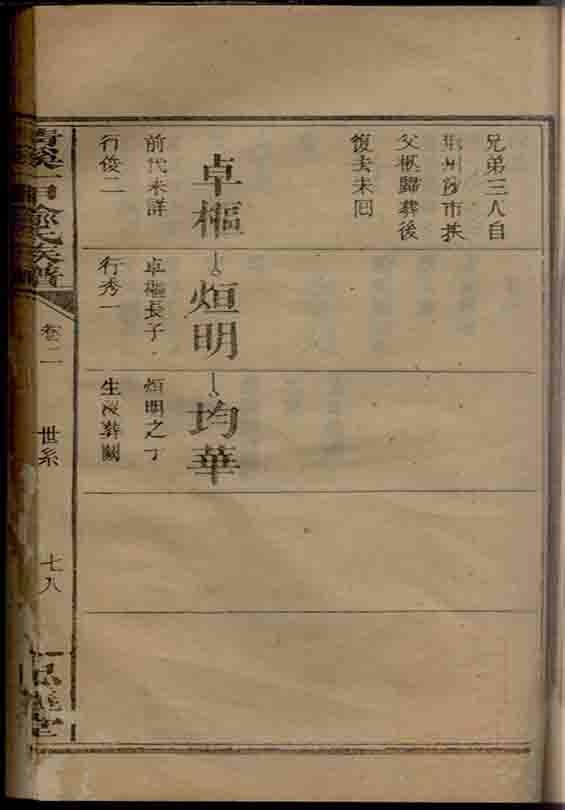 兄弟三人自
荊州沙市扶
父柩歸葬後
復去未囘
卓樞
前代未詳
行俊二
烜明
卓樞長子
行秀一
均華
烜明之子
生歿葬闕
族譜
卷二
世系
七八
堂